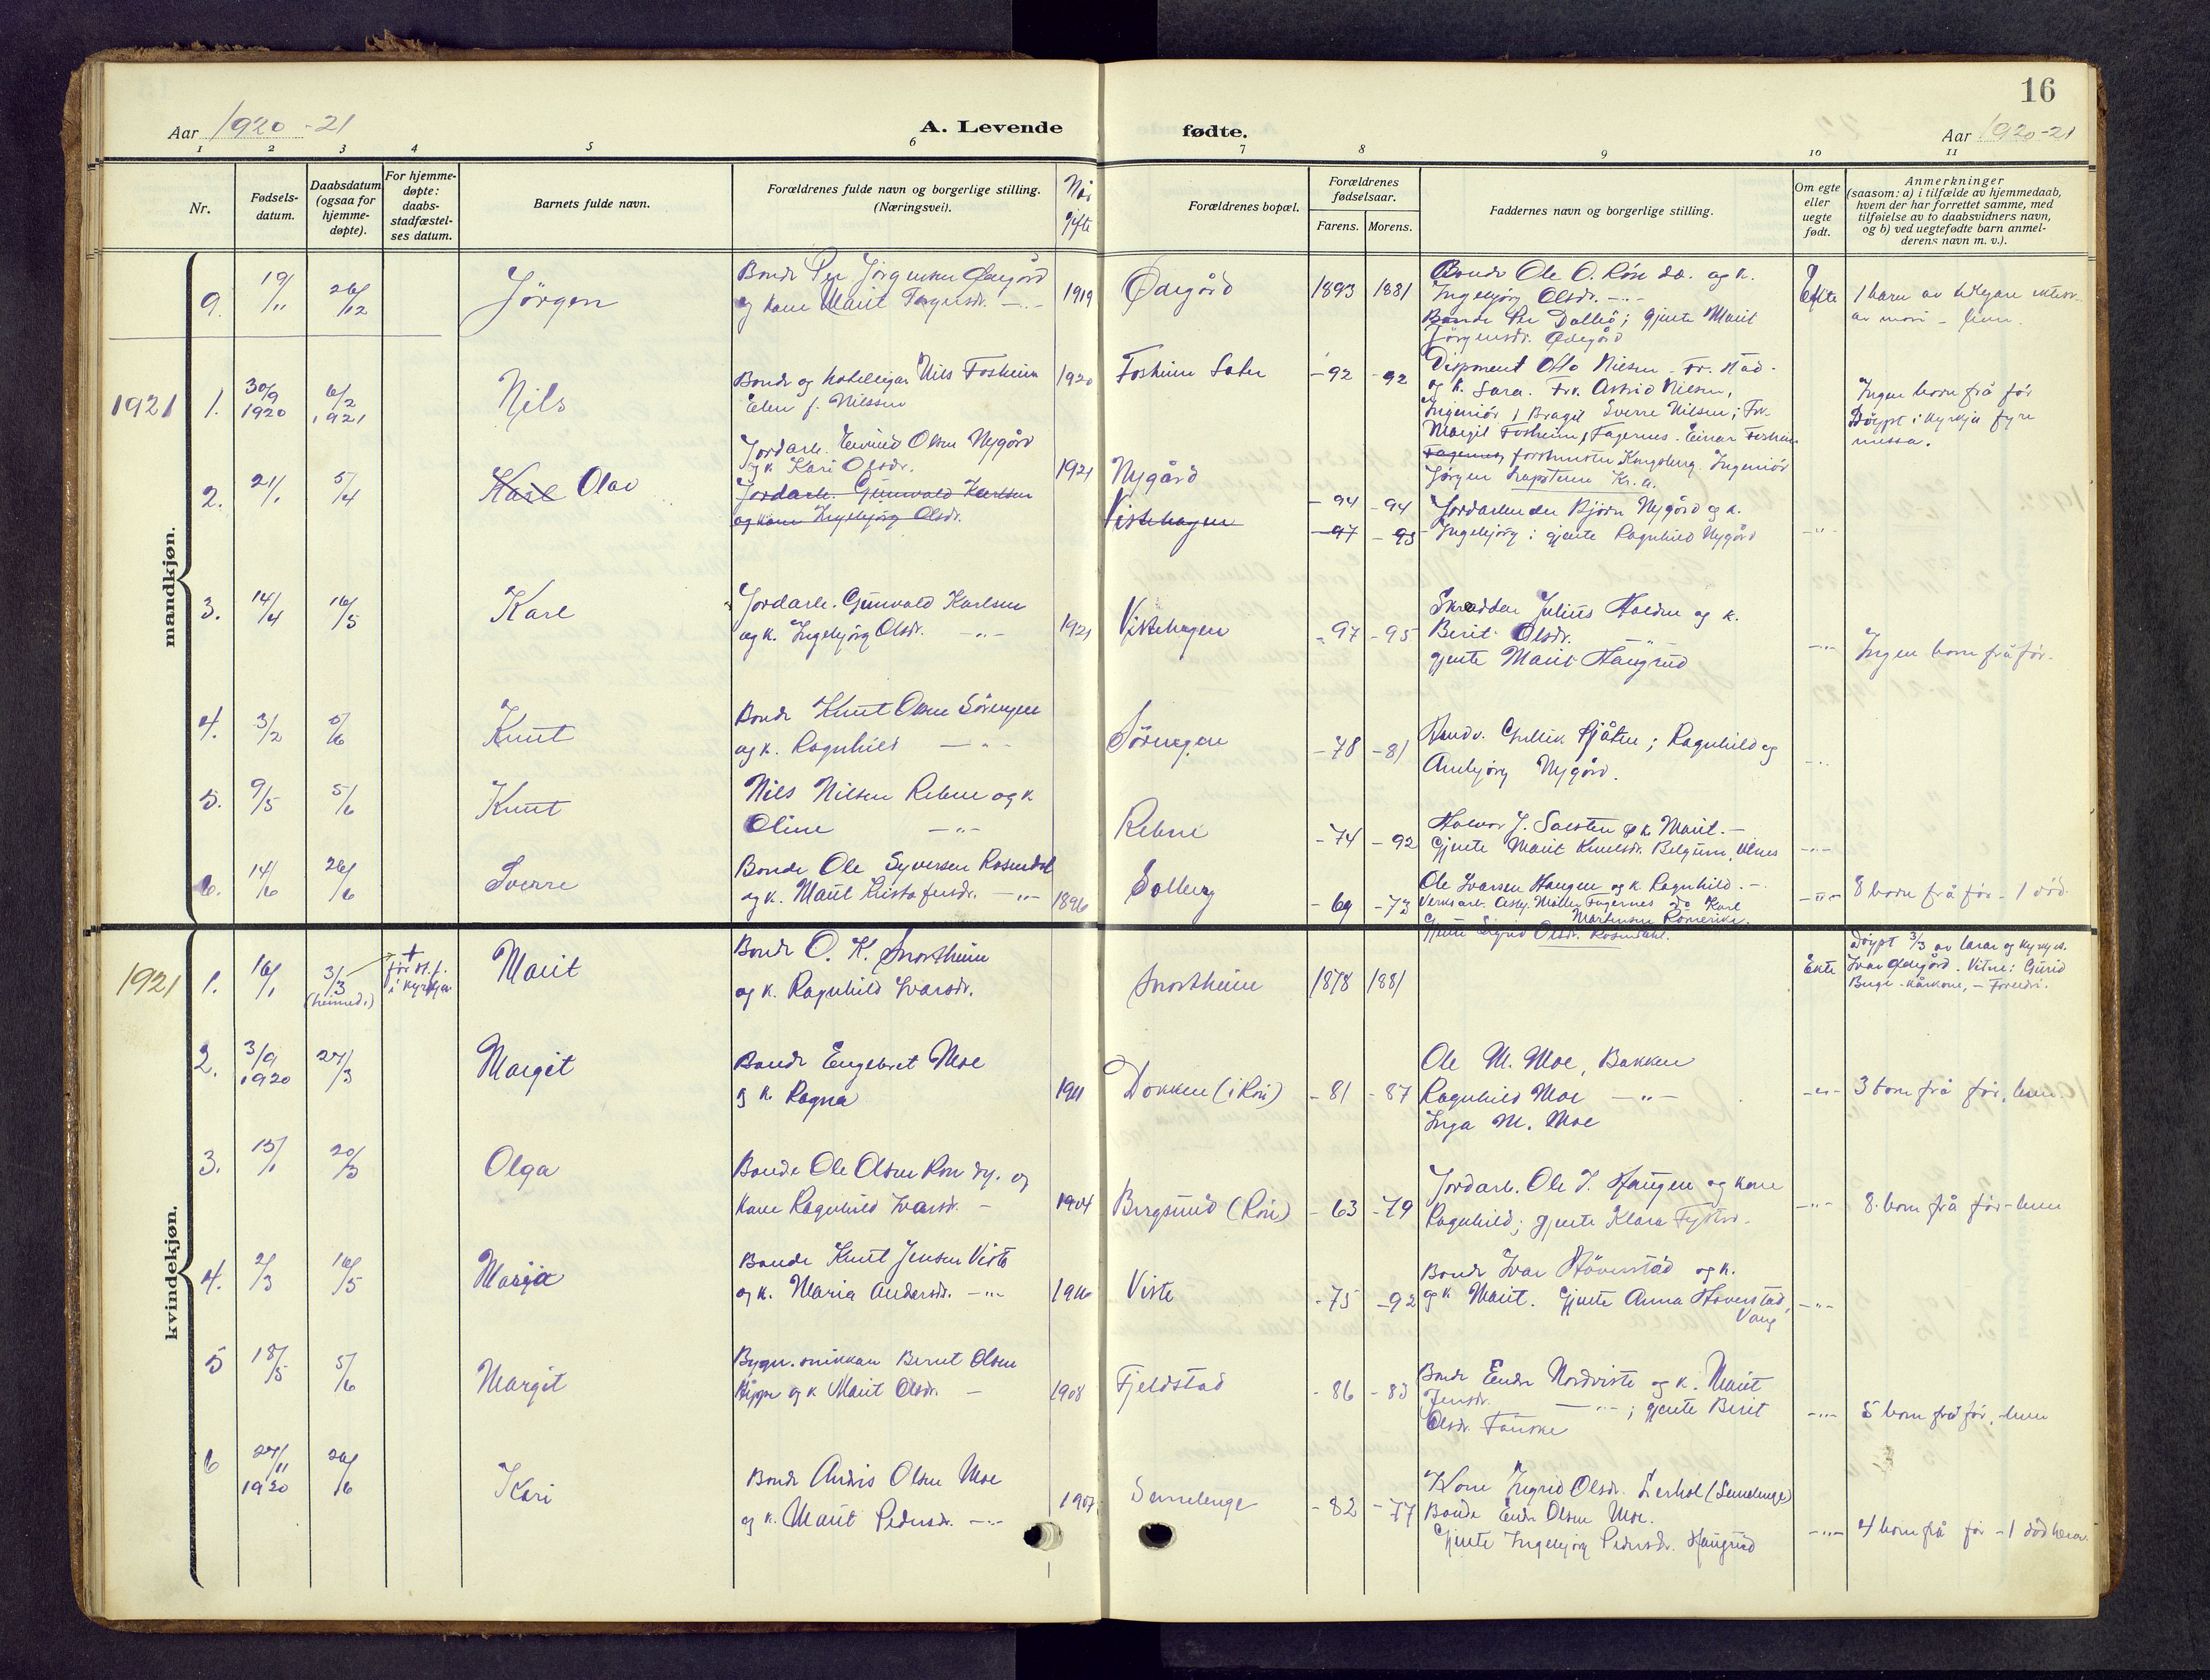 16
Aar 1920-21
A. Levende fødte.
Aar 1920-21
1 2 3 4 5 6 7 8 9 10 11
Nr.
Fødsels-
datum.
Daabsdatum
(ogsaa for
hjemme-
døpte).
For hjemme-
døpte:
daabs-
stadfæstel-
ses datum.
Barnets fulde navn.
Forældrenes fulde navn og borgerlige stilling.
(Næringsvei).
Når
gifte
Forældrenes bopæl.
Forældrenes
fødselsaar.
Farens. Morens.
Faddernes navn og borgerlige stilling.
Om egte
eller
uegte
født.
Anmerkninger
(saasom: a) i tilfælde av hjemmedaab,
hvem der har forrettet samme, med
tilføielse av to daabsvidners navn,
og b) ved uegtefødte barn anmel-
derens navn m. v.).
mandkjøn.
9. 19/11 26/12 Jörgen
Bonde Per Jörgensen Ödegård
og kone Marit
1919 Ödegård 1893 1881
Bonde Ole O. Rön og k.
Ingebjörg Olsdr. -"-
Bonde Per ; gjente Marit
Jörgensdr. Ödegård
Ekte
1 barn av
av mori
1921
1. 30/9 1920 6/2 1921 Nils
Bonde og hotelleigar Nils Fosheim
Elen f. Nilssen
1920 Fosheim Sater -92 -92
Disponent Otto Nielsen
og k. Sara. Frk. Astrid Nielsen,
Ingeniör Sverre Nilsen; Frk.
Margit Fosheim, Fagernes. Einar Fosheim
Fagernes, forstmester Kongsberg. Ingeniör
Jörgen Kr.a.
Ingen born frå för
Döypt i kyrkja fyre
messa.
2. 21/1 5/4 Karl Olav
Jordarb. Eivind Olsen Nygård
og k. Kari Olsdr.
Jordarb. Gunvald Karlsen
og kone Ingebjörg Olsdr.
1921 Nygård
Vistehagen
-94 -94
-97 -95
Jordarbeider Björn Nygård og k.
Ingebjörg; gjente Ragnhild Nygård
-"-
3. 14/4 16/5 Karl
Jordarb. Gunvald Karlsen
og k. Ingebjörg Olsdr. -"-
1921 Vistehagen -97 -95
Skredder Julius og k.
Berit Olsdr. -"-
gjente Marit Haugrud
-"-
Ingen born frå för.
4. 3/2 5/6 Knut
Bonde Knut Olsen Sörengen
og k. Ragnhild -"-
Sörengen -78 -81
Gullik ; Ragnhild og
Anbjörg Nygård.
-"-
5. 9/5 5/6 Knut
Nils Nilsen Rebne og k
Oline -"-
Rebne -74 -92
Halvor J. og k. Marit. -
Gjente Marit Knutsdr. Belgum, Ulnes
-"-
6. 14/6 26/6 Sverre
Bonde Ole Syversen Rosendal
og k. Marit Kristofersdr. -"-
1896 Solberg -69 -73
Ole Ivarsen Haugen og k. Ragnhild. -
Verksarb. Fagernes do Karl
Martinsen Romerike.
Gjente Sigrid Olsdr. Rosendahl.
-"-
8 born frå för - 1 död.
kvindekjøn.
1921
1. 16/1 3/3 (heimed.) + før st.f. i kyrkja
Marit
Bonde O. K. Snortheim
og k. Ragnhild Ivarsdr.
Snortheim 1878 1881
Ekte
Döypt 3/3 av lærar og
Ivar Ödegård. Vitne: Gurid
Berge - kårkone, - Foreldri.
2. 3/9 1920 27/3 Margit
Bonde Engebret Moe
og k. Ragna
1911 Dokken (i Rön) -81 -87
Ole M. Moe, Bakken
Ragnhild Moe -"-
Inga M. Moe
-"-
3 born frå för,
3. 13/1 20/3 Olga
Bonde Ole Olsen Rön og
kone Ragnhild Ivarsd. -
1904 Bergsund (Rön) -63 -79
Jordarb. Ole I. Haugen og kone
Ragnhild; gjente Klara
-"-
8. born frå för -
4. 2/3 16/5 Marja
Bonde Knut Jensen Viste
og k. Maria Andersdr. -"-
1916 Viste -75 -92
Bonde Ivar Höverstad og k.
og k Marit. Gjente Anna Höverstad,
Vang
-"-
5 18/5 5/6 Margit
Bygn. snikkar Bernt Olsen
og k Marit Olsdr. -
1908 Fjeldstad -86 -83
Bonde Endre Nordviste og k. Marit
Jensdr. -"- ; gjente Berit
Olsdr.
-"-
5 born frå för,
6 27/11 1920 26/6 Kari
Bonde Andris Olsen Moe
og k. Marit Pedersdr. -"-
1907 Semelenge -82 -77
Kone Ingrid Olsdr. Lerhol (Semelenge)
Bonde Endre Olsen Moe.
Gjente Ingebjörg Pedersdr. Haugrud
-"-
4 born frå för - 1 död